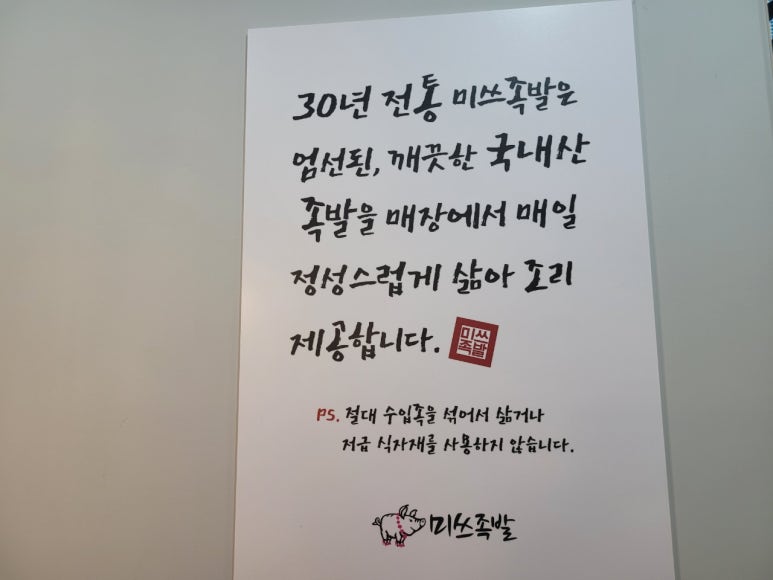 30년 전통 미쓰족발은
엄선된, 깨끗한 국내산
족발을 매장에서 매일
정성스럽게 삶아 조리
제공합니다.
미쓰
족발
PS. 절대 수입족을 섞어서 삶거나
저급 식자재를 사용하지 않습니다.
미쓰족발